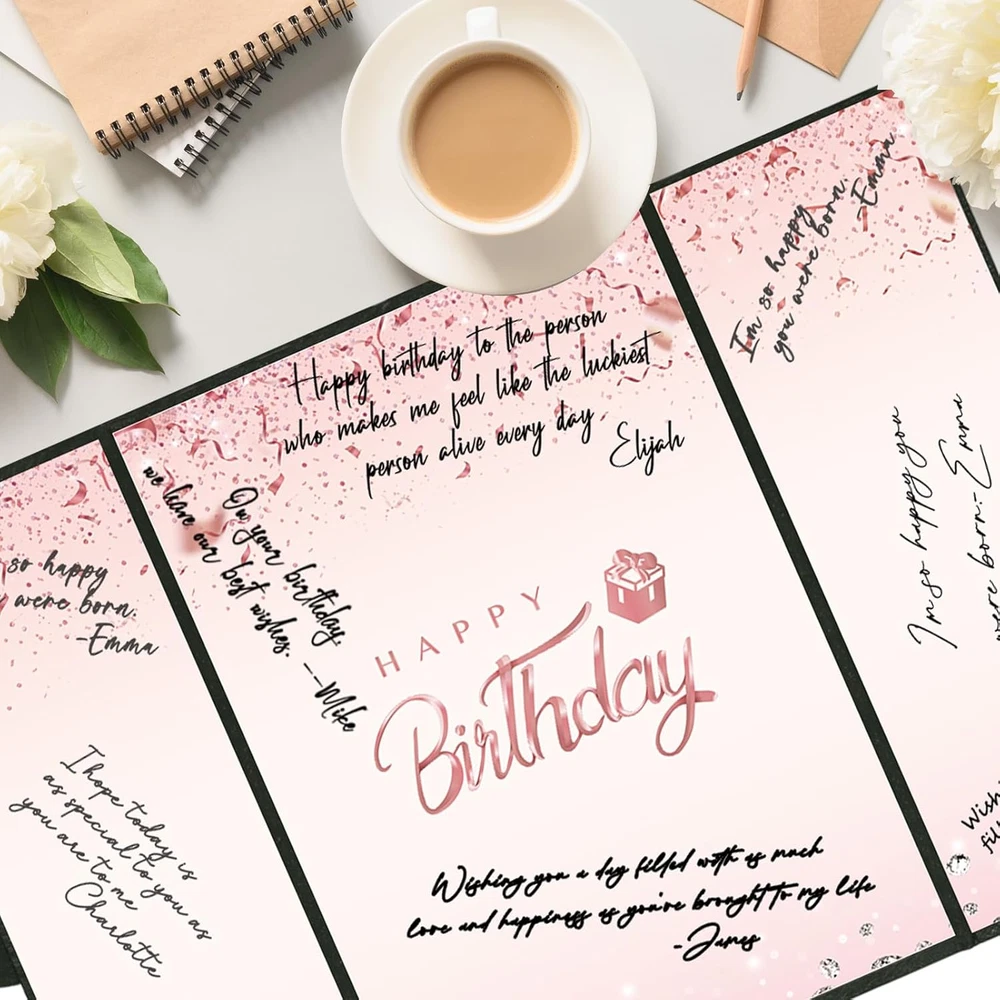 so happy
were born.
-Emma
I hope today is
as special to you as
you are to me
Charlotte
Happy birthday to the person
who makes me feel like the luckiest
person alive every day
Elijah
On your birthday,
we have our best wishes. --Mike
HAPPY
Birthday
Wishing you a day filled with as much
love and happiness as you're brought to my life
-James
Im so happy
you were born.
-Emma
Im so happy you
were born.- Emma
Wish